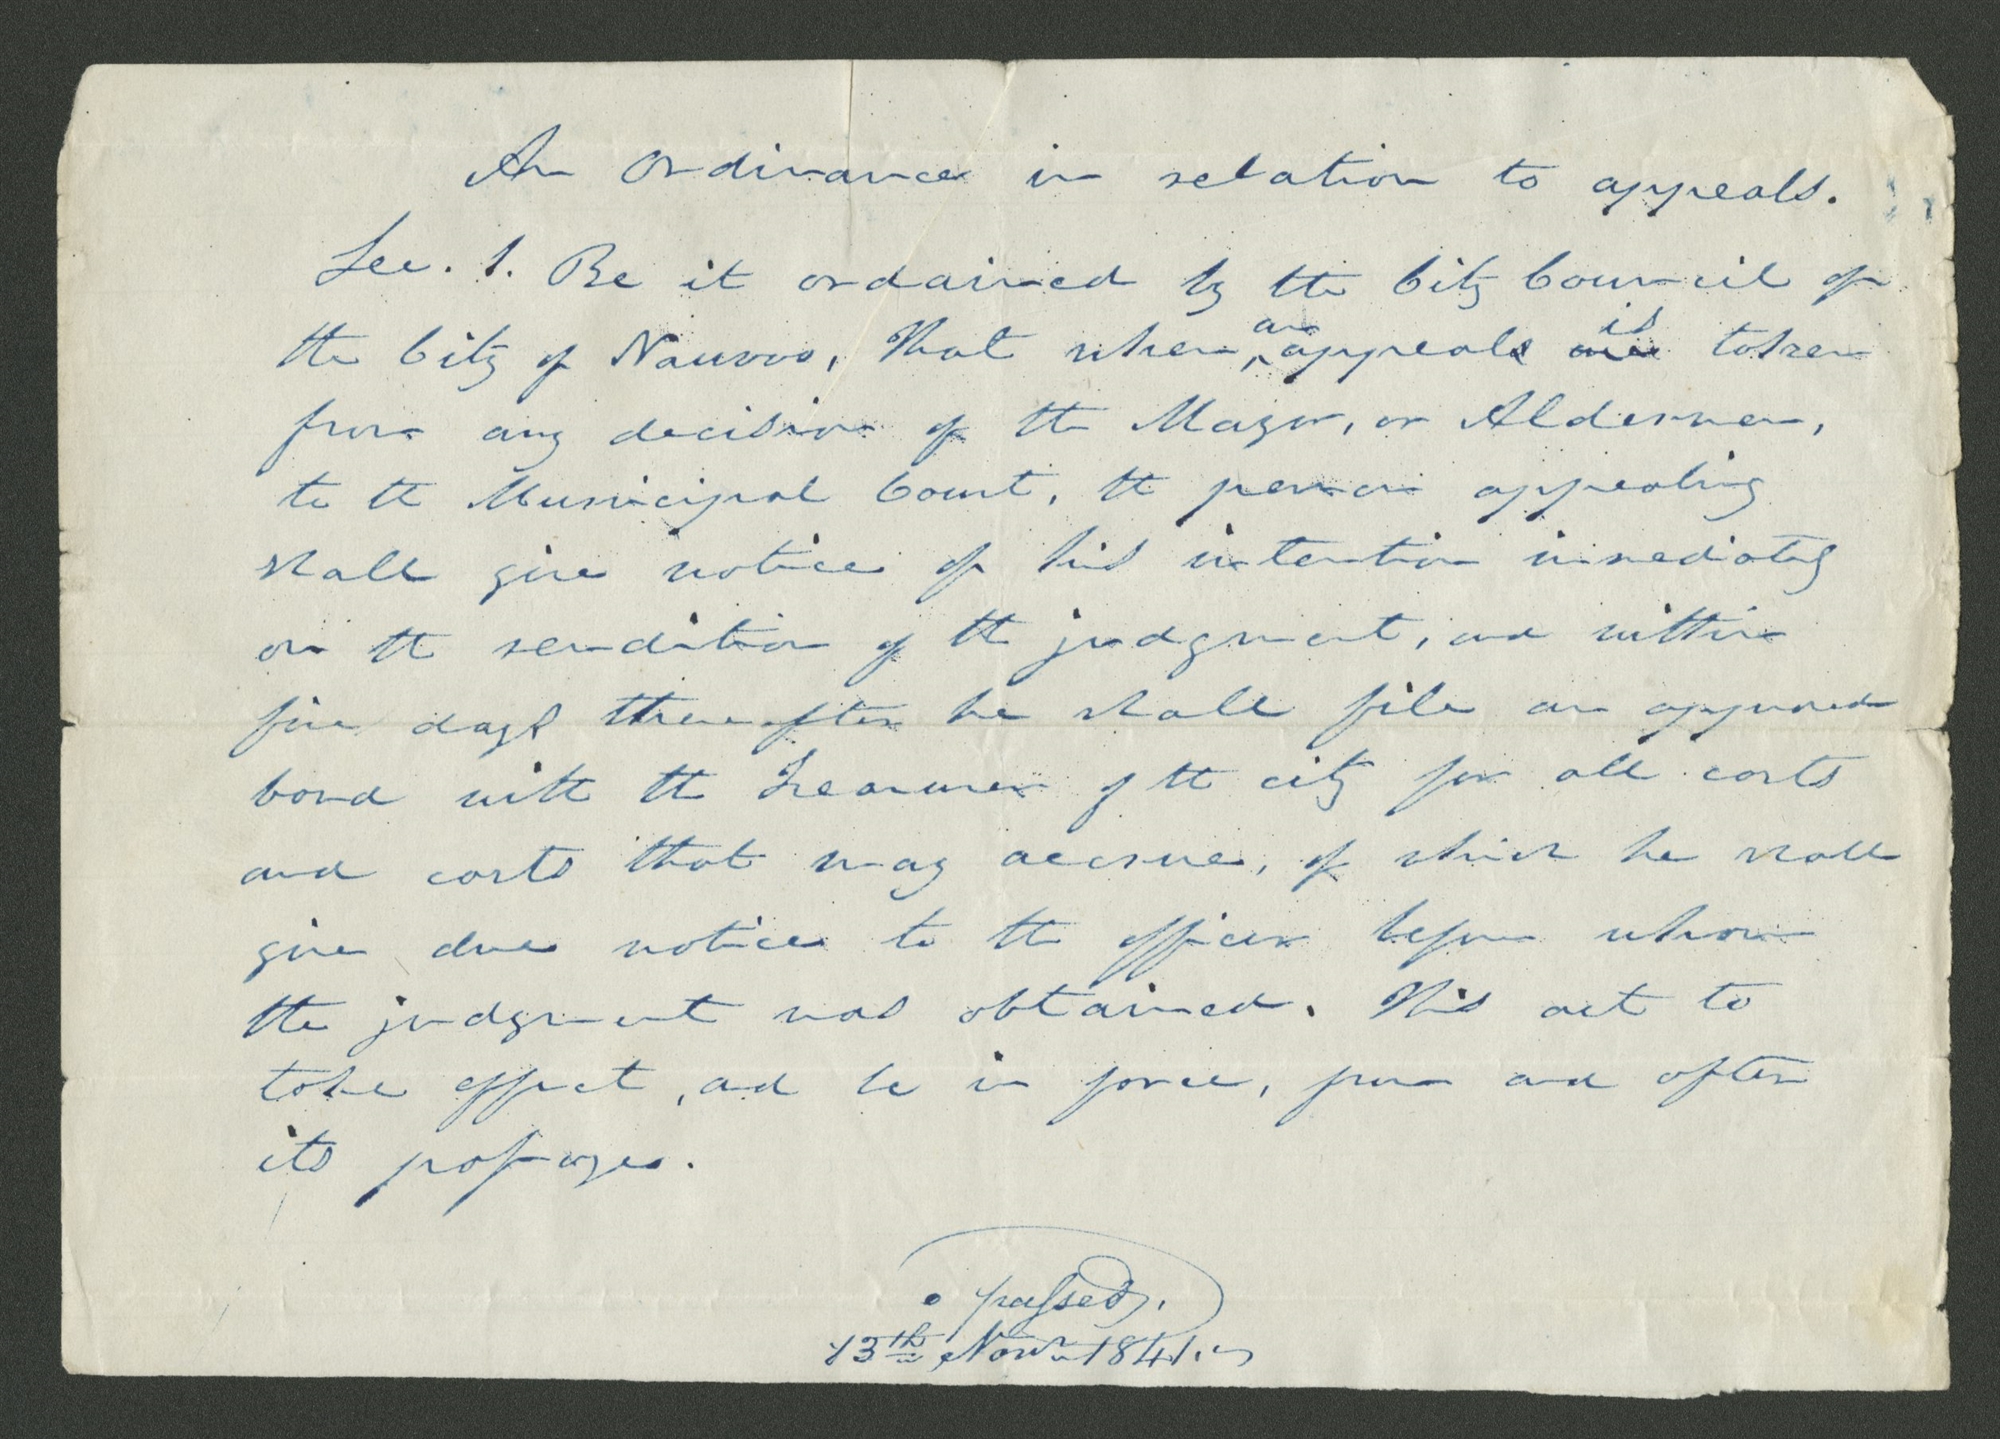 An Ordinance in relation to appeals.
Sec. 1. Be it ordained by the City Council of
the City of Nauvoo, That when, an appeals are is taken
from any decision of the Mayor, or Aldermen,
to the Municipal Court, the person appealing
shall give notice of his intention immediately
on the rendition of the judgment, and within
five days thereafter he shall file an approved
bond with the Treasurer of the city for all costs
and costs that may accrue, of which he shall
give due notice to the officer before whom
the judgment was obtained. This act to
take effect, and be in force, from and after
its passage.
passed.
13th Novr. 1841.